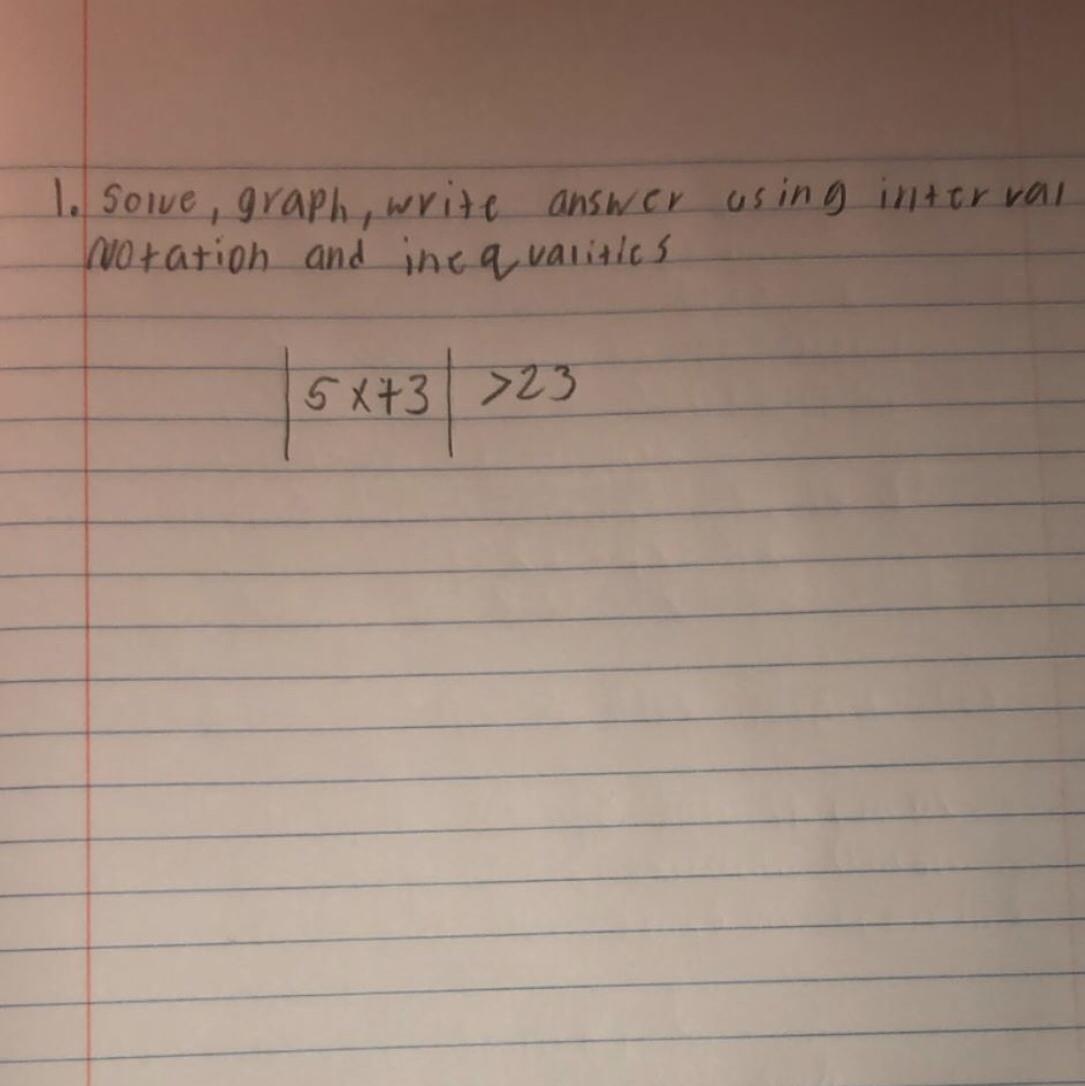 1. Solve, graph, write answer using interval
Notation and inequalities
|5x+3| >23